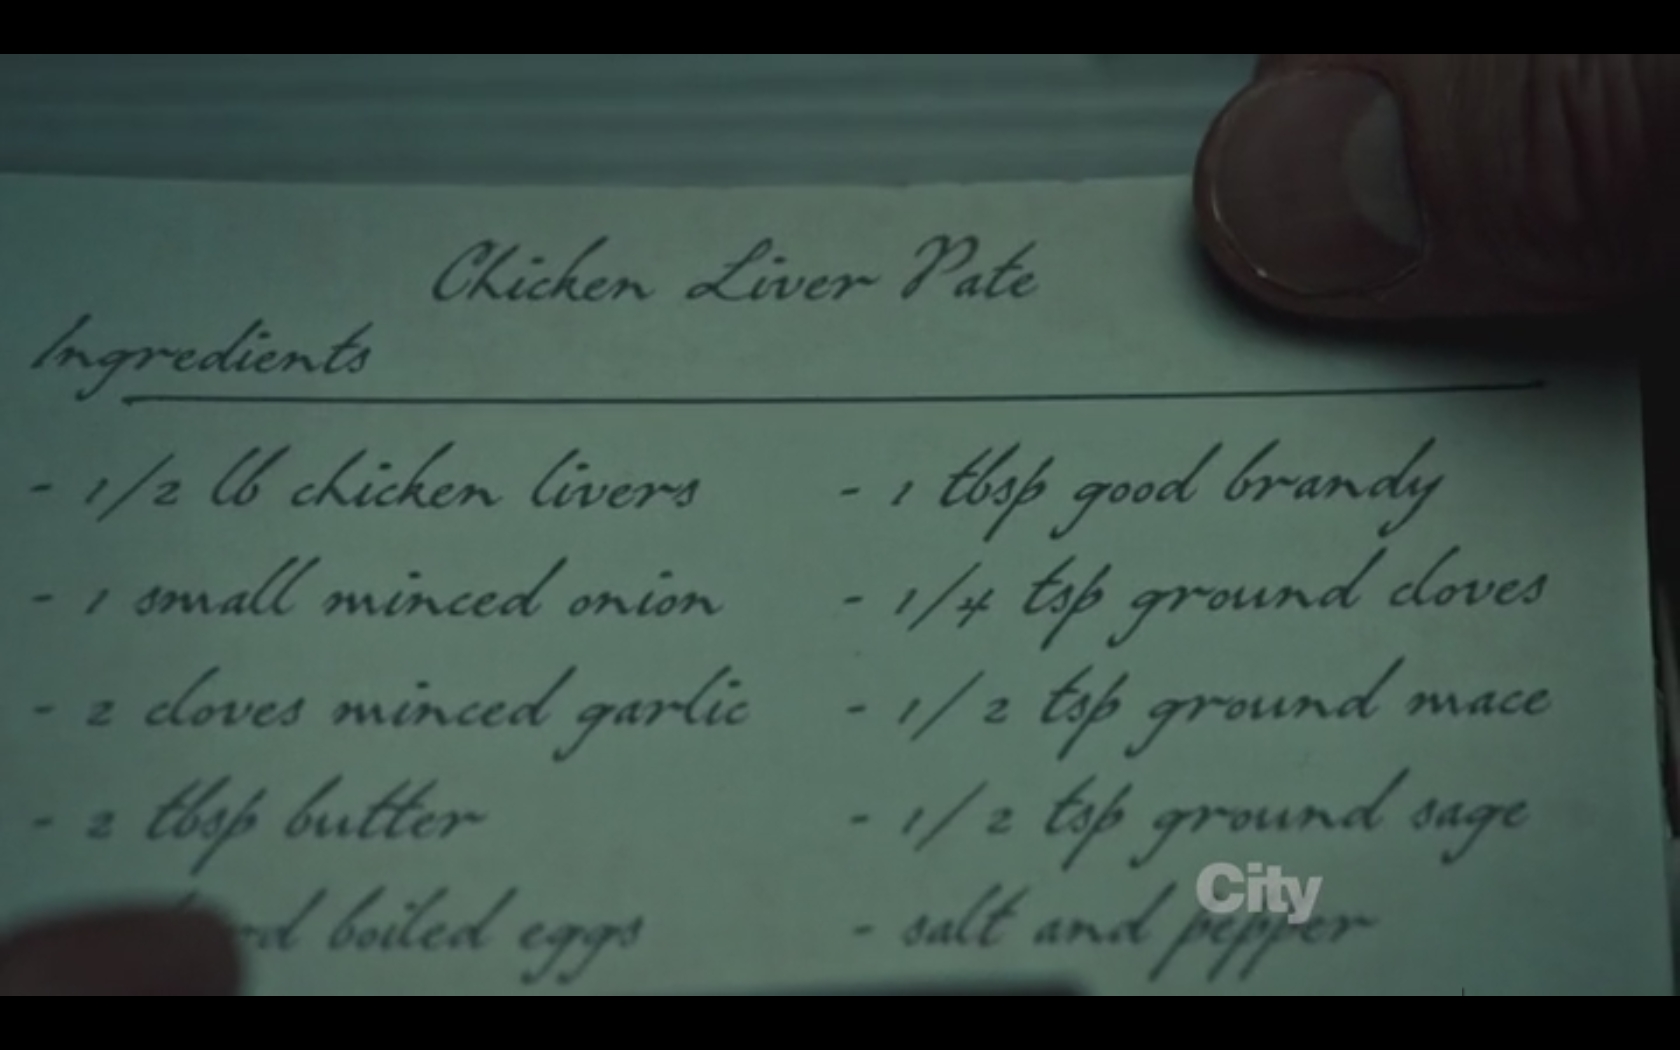 Chicken Liver Pate
Ingredients
- 1/2 lb chicken livers
- 1 small minced onion
- 2 cloves minced garlic
- 2 tbsp butter
boiled eggs
- 1 tbsp good brandy
- 1/4 tsp ground cloves
- 1/2 tsp ground mace
- 1/2 tsp ground sage
- salt and pepper
City